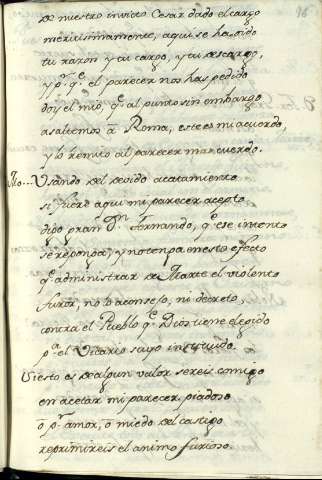 96
de nuestro invicto Cesar dado el cargo
meritissimamente, aqui se ha oido
tu razon y tu cargo, y tu descargo,
y p.s q.e el parecer nos has pedido
doy el mio, q.e al punto sin embargo
asaltemos à Roma, este es mi acuerdo,
y lo remito al parecer mas cuerdo.
Usando del devido acatamiento
si fuere aqui mi parecer acepto
digo gran D.n Fernando, q.e ese intento
se reponga, y no tenga en esto efecto
q.e administrar de Marte el violento
furor, no lo aconsejo, ni decreto,
contra el Pueblo q.e Dios tiene elegido
p.a el Vicario suyo instituido.
Si esto es de algun valor sereis comigo
en acetar mi parecer piadoso
ò p.r amor, ò miedo del castigo
reprimireis el animo furioso